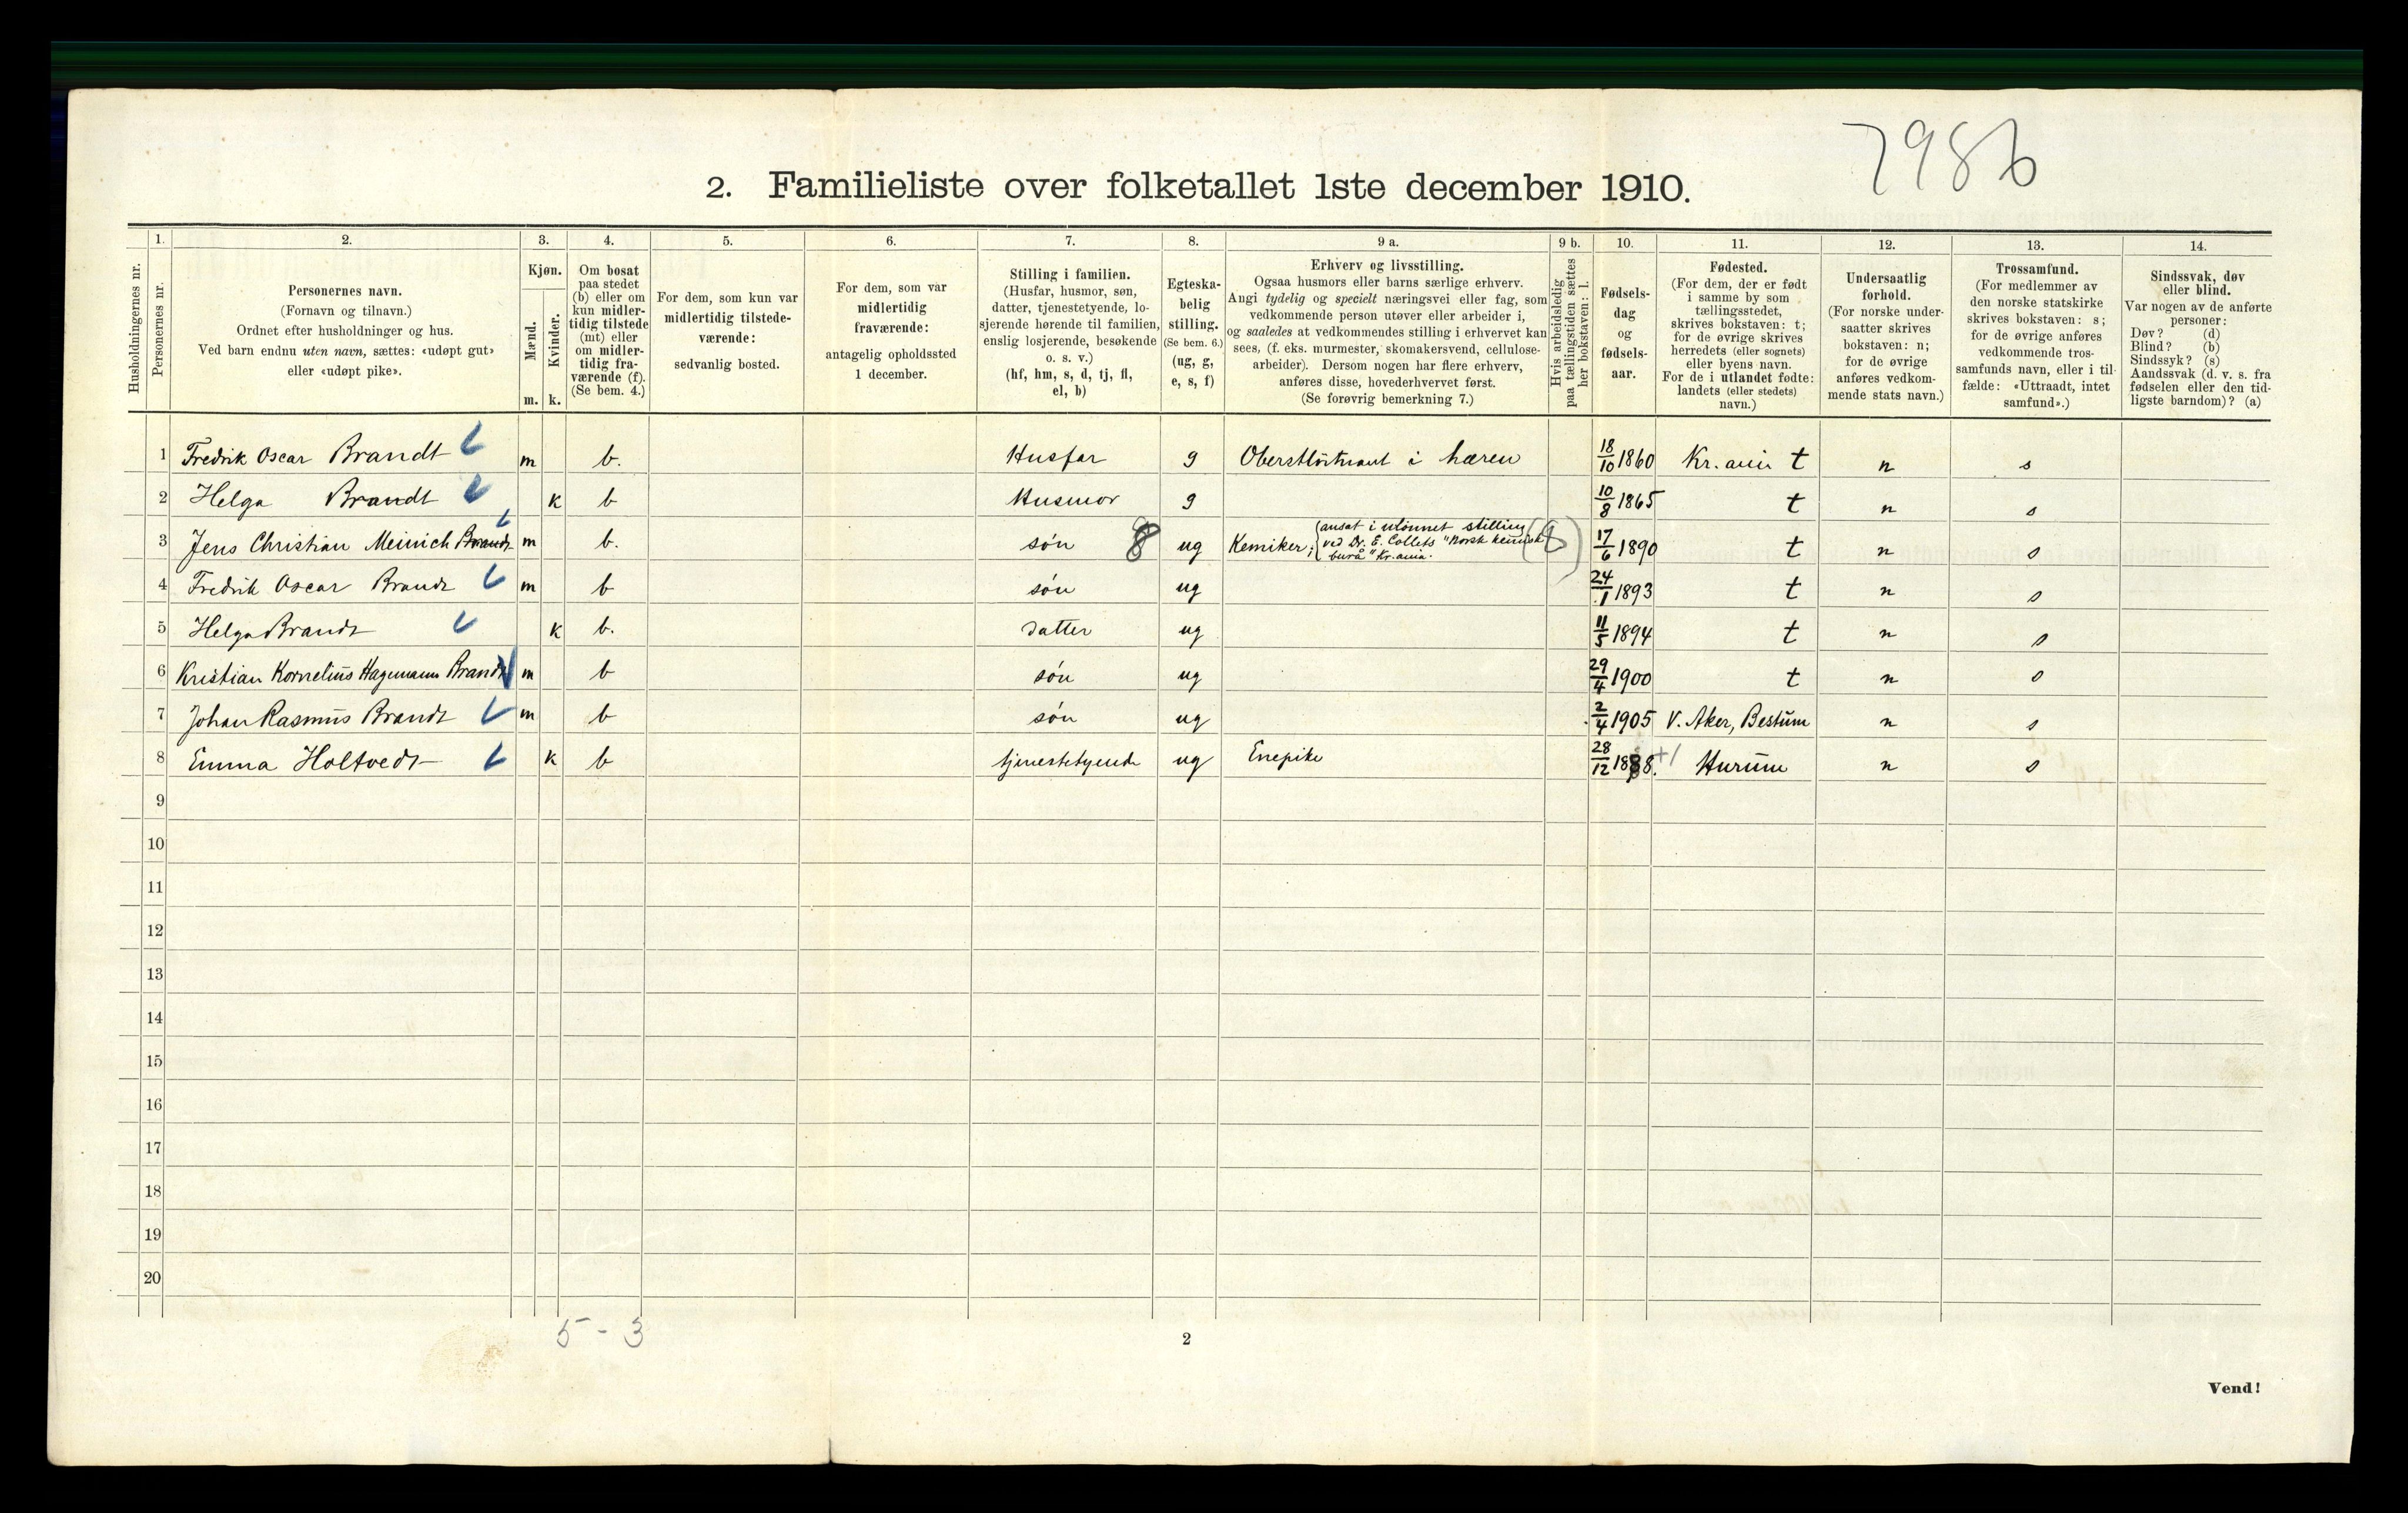 7986
2. Familieliste over folketallet 1ste december 1910.
1. 2. 3. 4. 5. 6. 7. 8. 9 a. 9 b. 10. 11. 12. 13. 14.
Husholdningernes nr.
Personernes nr.
Personernes navn.
(Fornavn og tilnavn.)
Ordnet efter husholdninger og hus.
Ved barn endnu uten navn, sættes: «udøpt gut»
eller «udøpt pike».
Kjøn.
Mænd.
Kvinder.
m. k.
Om bosat
paa stedet
(b) eller om
kun midler-
tidig tilstede
(mt) eller
om midler-
tidig fra-
værende (f).
(Se bem. 4.)
For dem, som kun var
midlertidig tilstede-
værende:
sedvanlig bosted.
For dem, som var
midlertidig
fraværende:
antagelig opholdssted
1 december.
Stilling i familien.
(Husfar, husmor, søn,
datter, tjenestetyende, lo-
sjerende hørende til familien,
enslig losjerende, besøkende
o. s. v.)
(hf, hm, s, d, tj, fl,
el, b)
Egteska-
belig
stilling.
(Se bem. 6.)
(ug, g,
e, s, f)
Erhverv og livsstilling.
Ogsaa husmors eller barns særlige erhverv.
Angi tydelig og specielt næringsvei eller fag, som
vedkommende person utøver eller arbeider i,
og saaledes at vedkommendes stilling i erhvervet kan
sees, (f. eks. murmester, skomakersvend, cellulose-
arbeider). Dersom nogen har flere erhverv,
anføres disse, hovederhvervet først.
(Se forøvrig bemerkning 7.)
Hvis arbeidsledig
paa tællingstiden sættes
her bokstaven: l.
Fødsels-
dag
og
fødsels-
aar.
Fødested.
(For dem, der er født
i samme by som
tællingsstedet,
skrives bokstaven: t;
for de øvrige skrives
herredets (eller sognets)
eller byens navn.
For de i utlandet fødte:
landets (eller stedets)
navn.)
Undersaatlig
forhold.
(For norske under-
saatter skrives
bokstaven: n;
for de øvrige
anføres vedkom-
mende stats navn.)
Trossamfund.
(For medlemmer av
den norske statskirke
skrives bokstaven: s;
for de øvrige anføres
vedkommende tros-
samfunds navn, eller i til-
fælde: «Uttraadt, intet
samfund».)
Sindssvak, døv
eller blind.
Var nogen av de anførte
personer:
Døv? (d)
Blind? (b)
Sindssyk? (s)
Aandssvak (d. v. s. fra
fødselen eller den tid-
ligste barndom)? (a)
1 Fredrik Oscar Brandt m b. Husfar g Oberstløitnant i hæren 18/10 1860 Kr.ania t n s
2 Helga Brandt k b Husmor g 10/8 1865 t n s
3 Jens Christian Meinich Brandt m b. søn 8 ug Kemiker; (ansat i ulønnet stilling ved Dr. E. Colletts "Norsk kemisk burå" Kr.ania. (8) 17/6 1890 t n s
4 Fredrik Oscar Brandt m b søn ug 24/1 1893 t n s
5 Helga Brandt k b. datter ug 11/5 1894 t n s
6 Kristian Kornelius Hagemann Brandt m b søn ug 29/4 1900 t n s
7 Johan Rasmus Brandt m b søn ug 2/4 1905 V. Aker, Bestum n s
8 Emma Holtvedt k b tjenestetyende ug Enepike 28/12 1888. +1 Hurum n s
9
10
11
12
13
14
15
16
17
18
19
20
5 - 3
2
Vend!